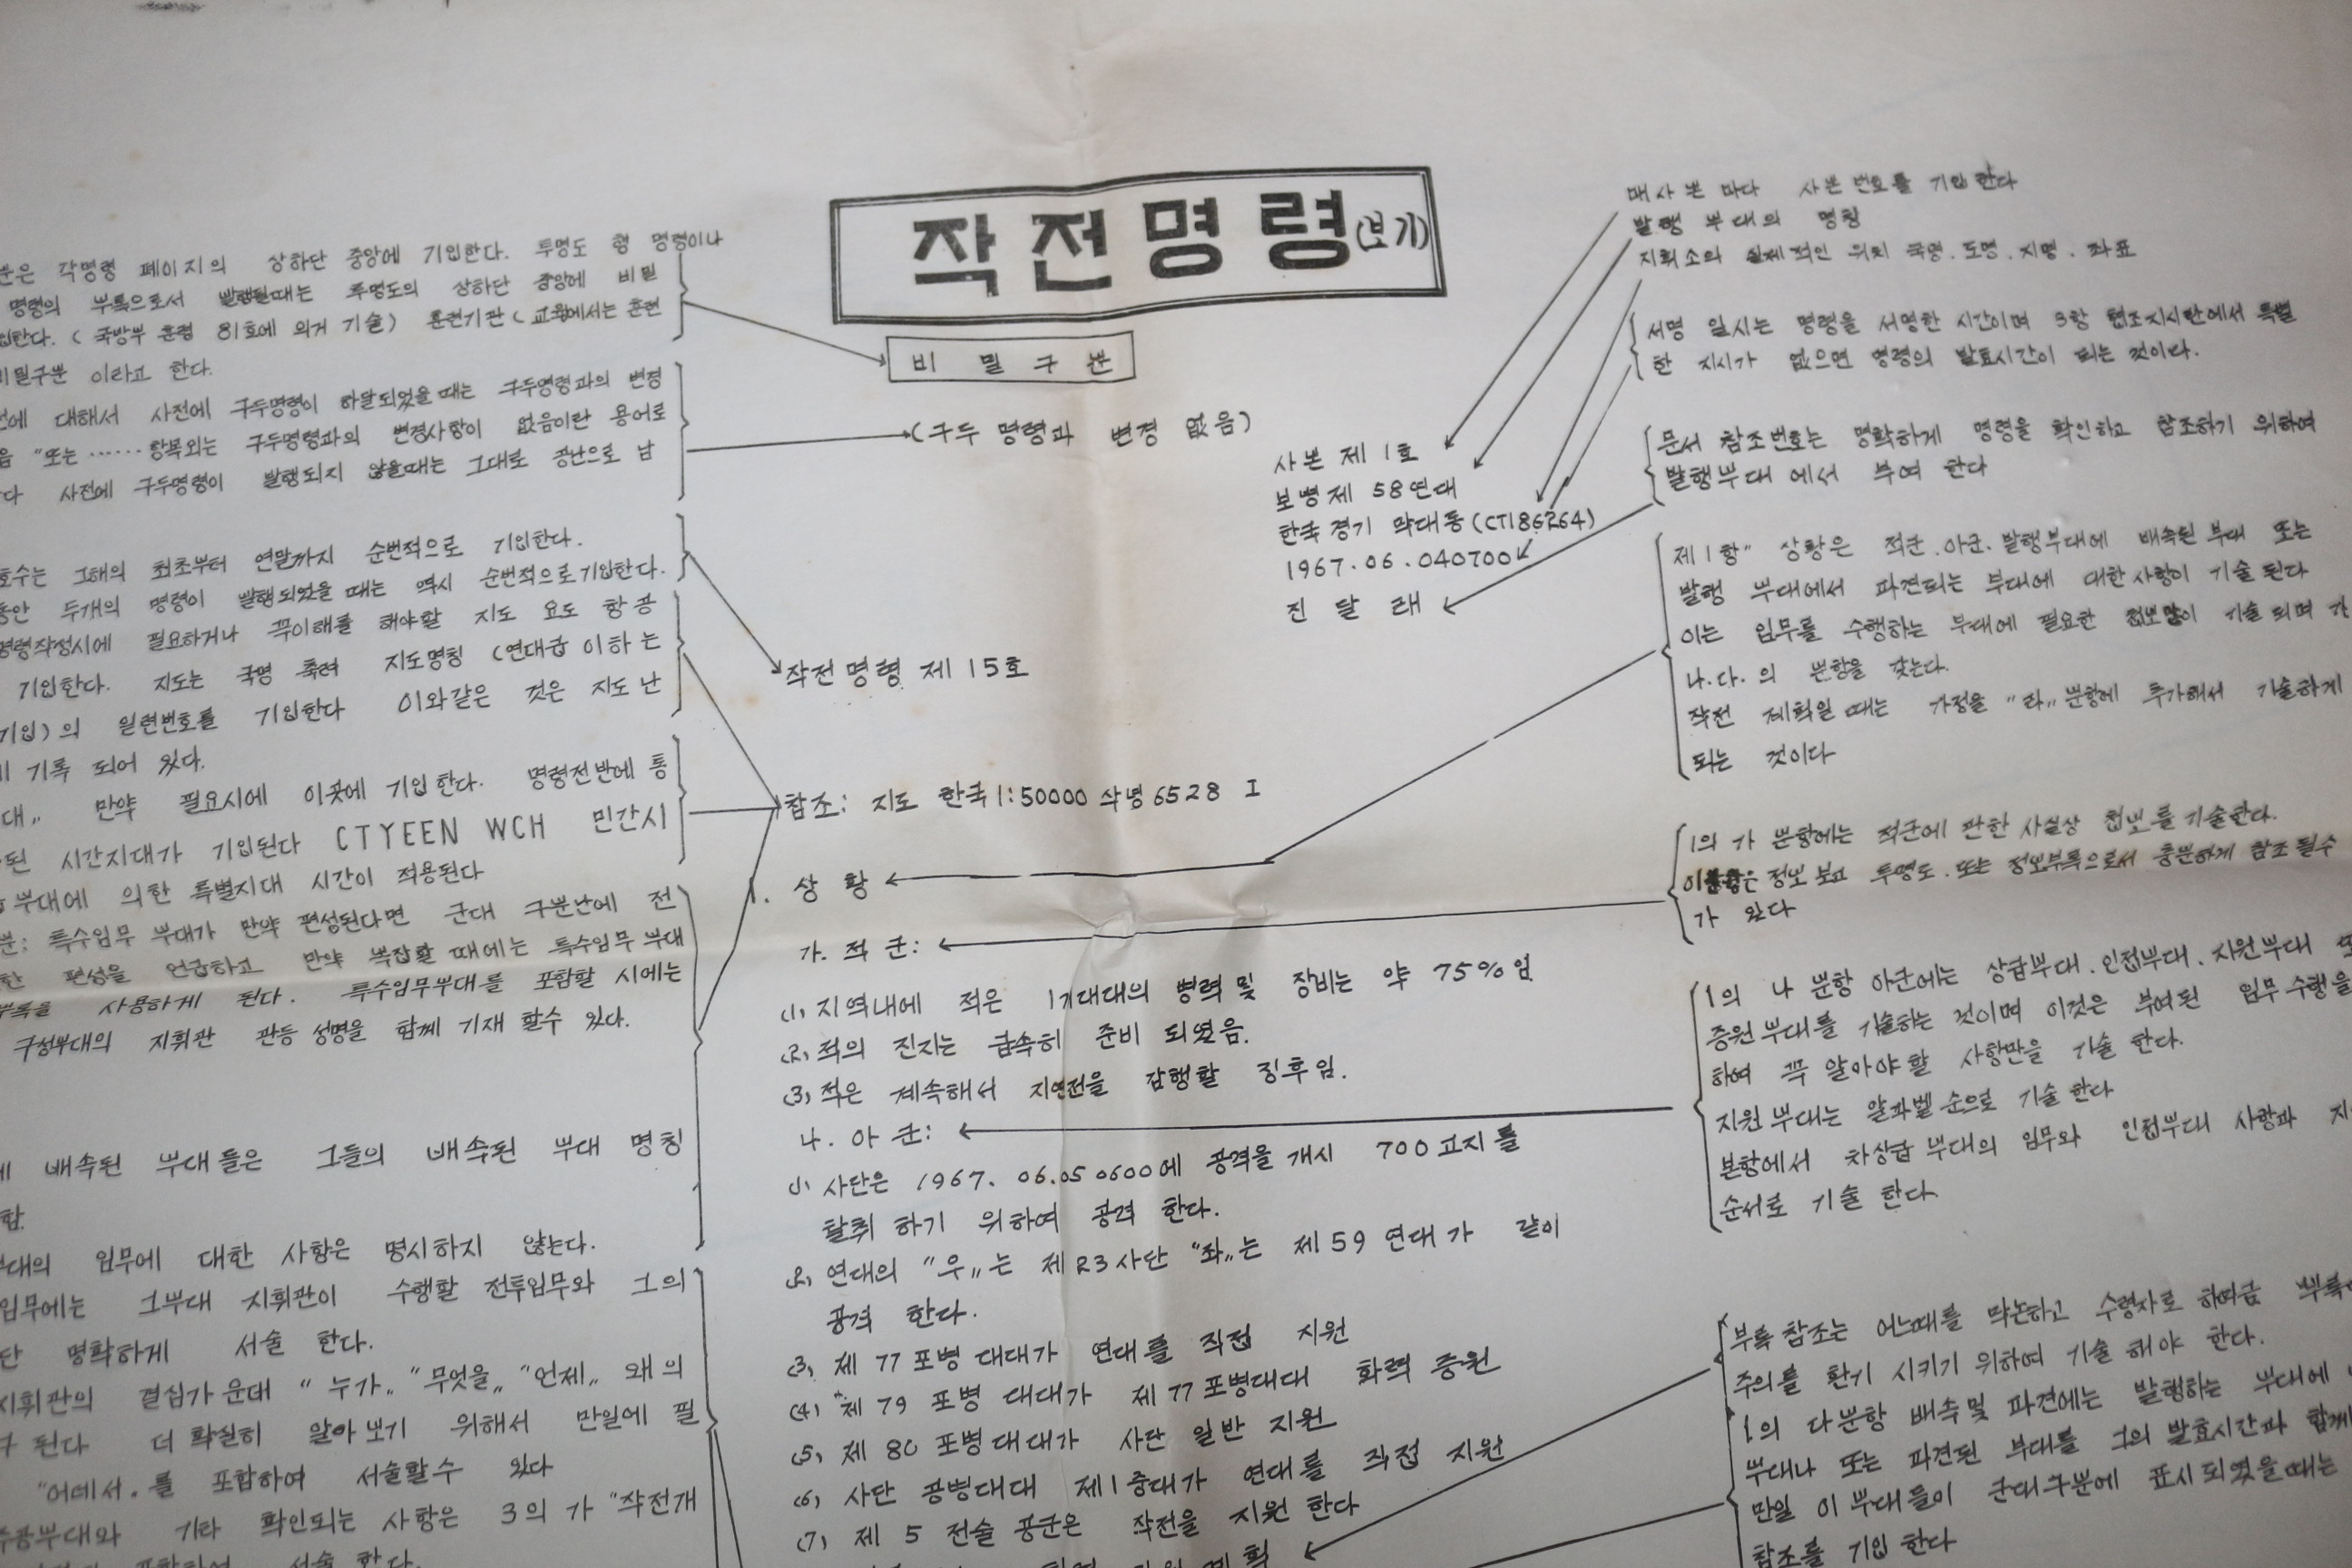 작전명령(보기)
분은 각명령 페이지의 상하단 중앙에 기입한다. 투명도 형 명령이나
명령의 부록으로서 발행될때는 투명도의 상하단 중앙에 비밀
입한다. (국방부 훈령 81호에 의거 기술) 훈련기관(교육에서는 훈련
비밀구분 이라고 한다.
전에 대해서 사전에 구두명령이 하달되었을 때는 구두명령과의 변경
음 "또는 ......항목외는 구두명령과의 변경사항이 없음이란 용어로
다 사전에 구두명령이 발행되지 않을때는 그대로 공난으로 남
호수는 그해의 최초부터 연말까지 순번적으로 기입한다.
동안 두개의 명령이 발행되었을 때는 역시 순번적으로기입한다.
명령작성시에 필요하거나 꼭이해를 해야할 지도 요도 항공
기입한다. 지도는 국명 축척 지도명칭 (연대급 이하는
기입)의 일련번호를 기입한다 이와같은 것은 지도 난
기록 되어 있다.
대„ 만약 필요시에 이곳에 기입한다. 명령전반에 통
된 시간지대가 기입된다 CTYEEN WCH 민간시
부대에 의한 특별지대 시간이 적용된다
분: 특수임무 부대가 만약 편성된다면 군대 구분난에 전
한 편성을 언급하고 만약 복잡할 때에는 특수임무 부대
부록을 사용하게 된다. 특수임무부대를 포함할 시에는
구성부대의 지휘관 관등 성명을 함께 기재 할수 있다.
배속된 부대들은 그들의 배속된 부대 명칭
함.
부대의 임무에 대한 사항은 명시하지 않는다.
임무에는 그부대 지휘관이 수행할 전투임무와 그의
단 명확하게 서술 한다.
지휘관의 결심가운데 "누가„ "무엇을„ "언제„ 왜의
구 된다 더 확실히 알아 보기 위해서 만일에 필
"어데서„를 포함하여 서술할수 있다
주공부대와 기타 확인되는 사항은 3의 가 "작전개
포함하여 서술 한다.
비밀구분
(구두 명령과 변경 없음)
사본 제 1호
보병 제 58연대
한국 경기 막대동(CT186264)
1967.06.040700
진달래
작전명령 제 15호
참조: 지도 한국 1:50000 삭녕 6528 I
1. 상황
가. 적군:
(1) 지역내에 적은 1개대대의 병력 및 장비는 약 75%임
(2) 적의 진지는 급속히 준비 되였음.
(3) 적은 계속해서 지연전을 감행할 징후임.
나. 아군:
(1) 사단은 1967. 06.05 0600에 공격을 개시 700고지를
탈취 하기 위하여 공격 한다.
(2) 연대의 "우„는 제23사단 "좌„는 제59연대가 같이
공격 한다.
(3) 제 77포병 대대가 연대를 직접 지원
(4) 제 79 포병 대대가 제77포병대대 화력 증원
(5) 제 80 포병대대가 사단 일반 지원
(6) 사단 공병대대 제1중대가 연대를 직접 지원
(7) 제 5 전술 공군은 작전을 지원 한다
매사본 마다 사본 번호를 기입 한다
발행 부대의 명칭
지휘소의 실제적인 위치 국명.도명.지명.좌표
서명 일시는 명령을 서명한 시간이며 3항 협조지시란에서 특별
한 지시가 없으면 명령의 발효시간이 되는 것이다.
문서 참조번호는 명확하게 명령을 확인하고 참조하기 위하여
발행부대 에서 부여 한다
제1항" 상황은 적군.아군.발행부대에 배속된 부대 또는
발행 부대에서 파견되는 부대에 대한사항이 기술 된다
이는 임무를 수행하는 부대에 필요한 첩보만이 기술 되며 가
나.다.의 분항을 갖는다.
작전 계획일 때는 가정을 "라„ 분항에 추가해서 기술하게
되는 것이다
1의 가 분항에는 적군에 관한 사실상 첩보를 기술한다.
정보 보고 투명도.또는 정보부록으로서 충분하게 참조될수
가 있다
1의 나 분항 아군에는 상급부대.인접부대.지원부대 또
증원부대를 기술하는 것이며 이것은 부여된 임무수행을
하여 꼭 알아야할 사항만을 기술 한다.
지원부대는 알파벨순으로 기술 한다
본항에서 차상급부대의 임무와 인접부대 사항과 지
순서로 기술 한다.
부록 참조는 어느때를 막논하고 수령자로 하여금 부록에
주의를 환기 시키기 위하여 기술 해야 한다.
1의 다분항 배속 및 파견에는 발행하는 부대에
부대나 또는 파견된 부대를 그의 발효시간과 함께
만일 이 부대들이 군대구분에 표시되였을때는
참조를 기입 한다